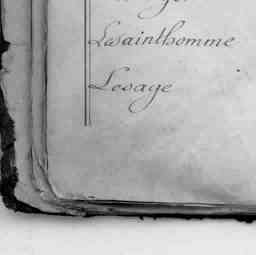 Lesainthomme
Lesage